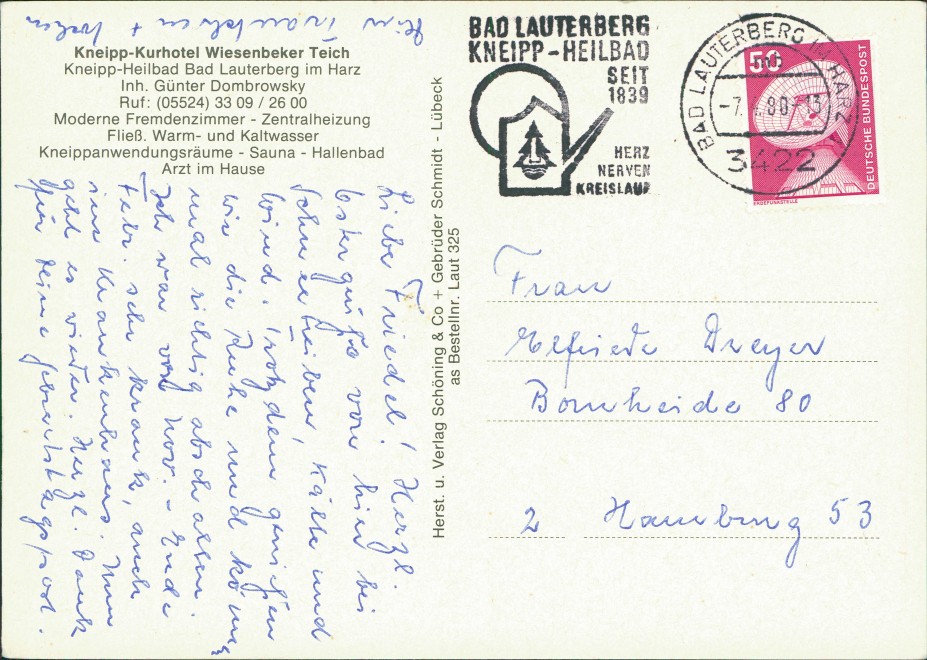 Kneipp-Kurhotel Wiesenbeker Teich
Kneipp-Heilbad Bad Lauterberg im Harz
Inh. Günter Dombrowsky
Ruf: (05524) 33 09 / 26 00
Moderne Fremdenzimmer - Zentralheizung
Fließ. Warm- und Kaltwasser
Kneippanwendungsräume - Sauna - Hallenbad
Arzt im Hause
Liebe Friedel! Herzl.
Ostergrüße von hier bei
Schneetreiben, Kälte und
Wind. Trotzdem genießen
wir die Ruhe und können
mal richtig abschalten.
Ich war von Nov. - Ende
Febr. sehr krank, auch
im Krankenhaus. Nun
geht es wieder. Herzl. Dank
für Deine Geburtstagspost.
Herst. u. Verlag Schöning & Co + Gebrüder Schmidt - Lübeck
als Bestellnr. Laut 325
BAD LAUTERBERG
KNEIPP-HEILBAD
SEIT
1839
HERZ
NERVEN
KREISLAUF
BAD LAUTERBERG IM HARZ
3422
50
DEUTSCHE BUNDESPOST
ERDEFUNKSTELLE
Frau
Elfriede Dreyer
Bornheide 80
2 Hamburg 53